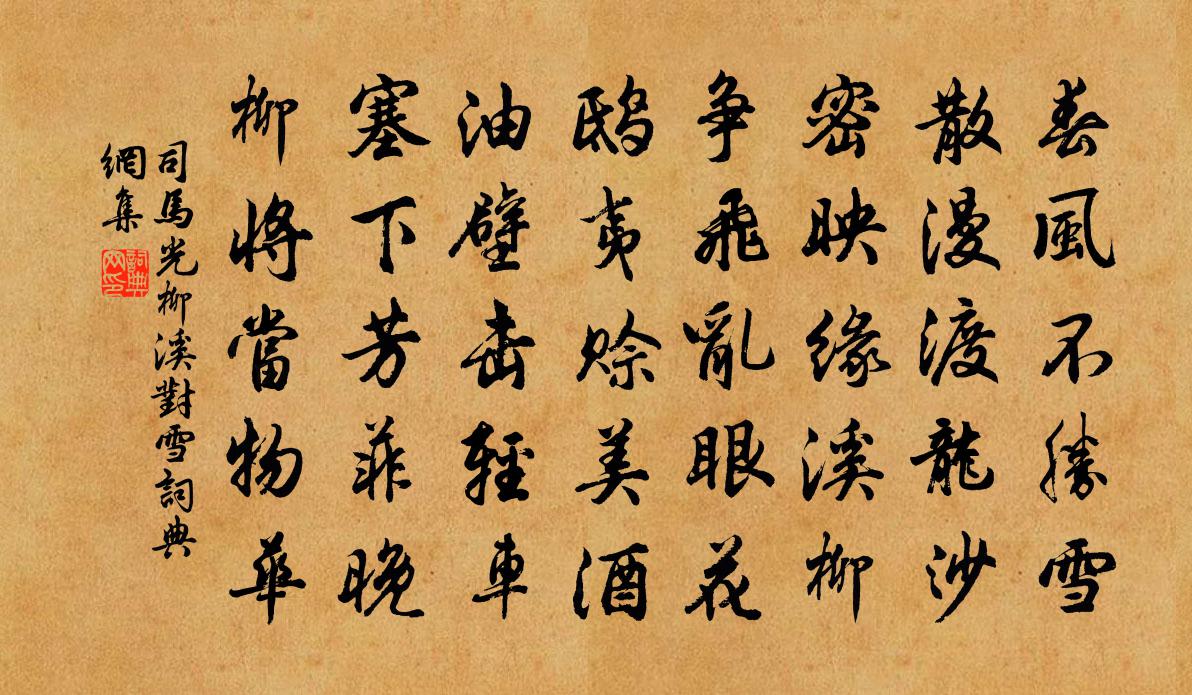 春風不勝雪
散漫渡龍沙
密映緣溪柳
争飛亂眼花
鴟夷賒美酒
油壁击輕車
塞下芳菲晚
柳將當物華
司馬光柳溪對雪詞典
網集
詞典
网印